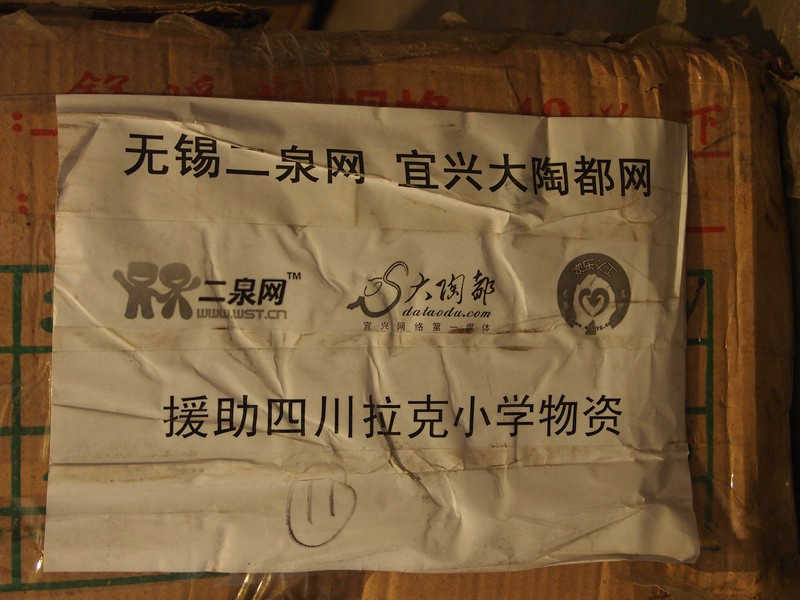 无锡二泉网 宜兴大陶都网
二泉网™
WWW.WST.CN
大陶都
dataodu.com
宜兴网络第一媒体
援助四川拉克小学物资
11